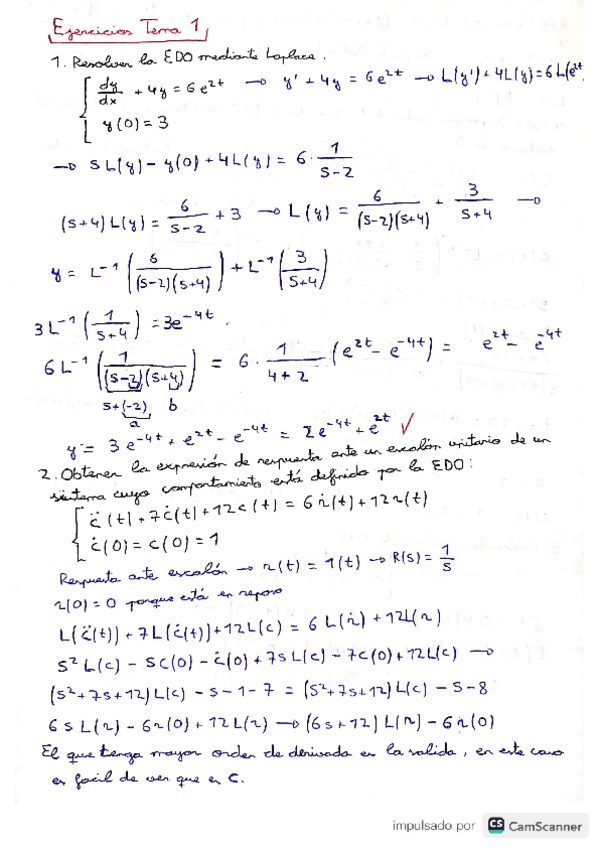 Ejercicios Tema 1
1. Resolver la EDO mediante Laplace.
dy/dx + 4y = 6e^2t → y' + 4y = 6e^2t → L(y') + 4L(y) = 6L(e^2t
y(0) = 3
→ sL(y) - y(0) + 4L(y) = 6 · 1/(s-2)
(s+4)L(y) = 6/(s-2) + 3 → L(y) = 6/((s-2)(s+4)) + 3/(s+4) →
y = L^-1(6/((s-2)(s+4))) + L^-1(3/(s+4))
3L^-1(1/(s+4)) = 3e^-4t.
6L^-1(1/((s-2)(s+4))) = 6 · 1/(4+2) (e^2t - e^-4t) = e^2t - e^-4t
s+(-2) b
a
y = 3e^-4t + e^2t - e^-4t = 2e^-4t + e^2t ✓
2. Obtener la expresión de respuesta ante un escalón unitario de un
sistema cuyo comportamiento está definido por la EDO:
c̈(t) + 7ċ(t) + 12c(t) = 6ṙ(t) + 12r(t)
ċ(0) = c(0) = 1
Respuesta ante escalón → r(t) = 1(t) → R(s) = 1/s
r(0) = 0 porque está en reposo
L(c̈(t)) + 7L(ċ(t)) + 12L(c) = 6L(ṙ) + 12L(r)
s²L(c) - sc(0) - ċ(0) + 7sL(c) - 7c(0) + 12L(c) →
(s²+7s+12)L(c) - s - 1 - 7 = (s²+7s+12)L(c) - s - 8
6sL(r) - 6r(0) + 12L(r) → (6s+12)L(r) - 6r(0)
El que tenga mayor orden de derivada es la salida, en este caso
es facil de ver que es C.
impulsado por CS CamScanner